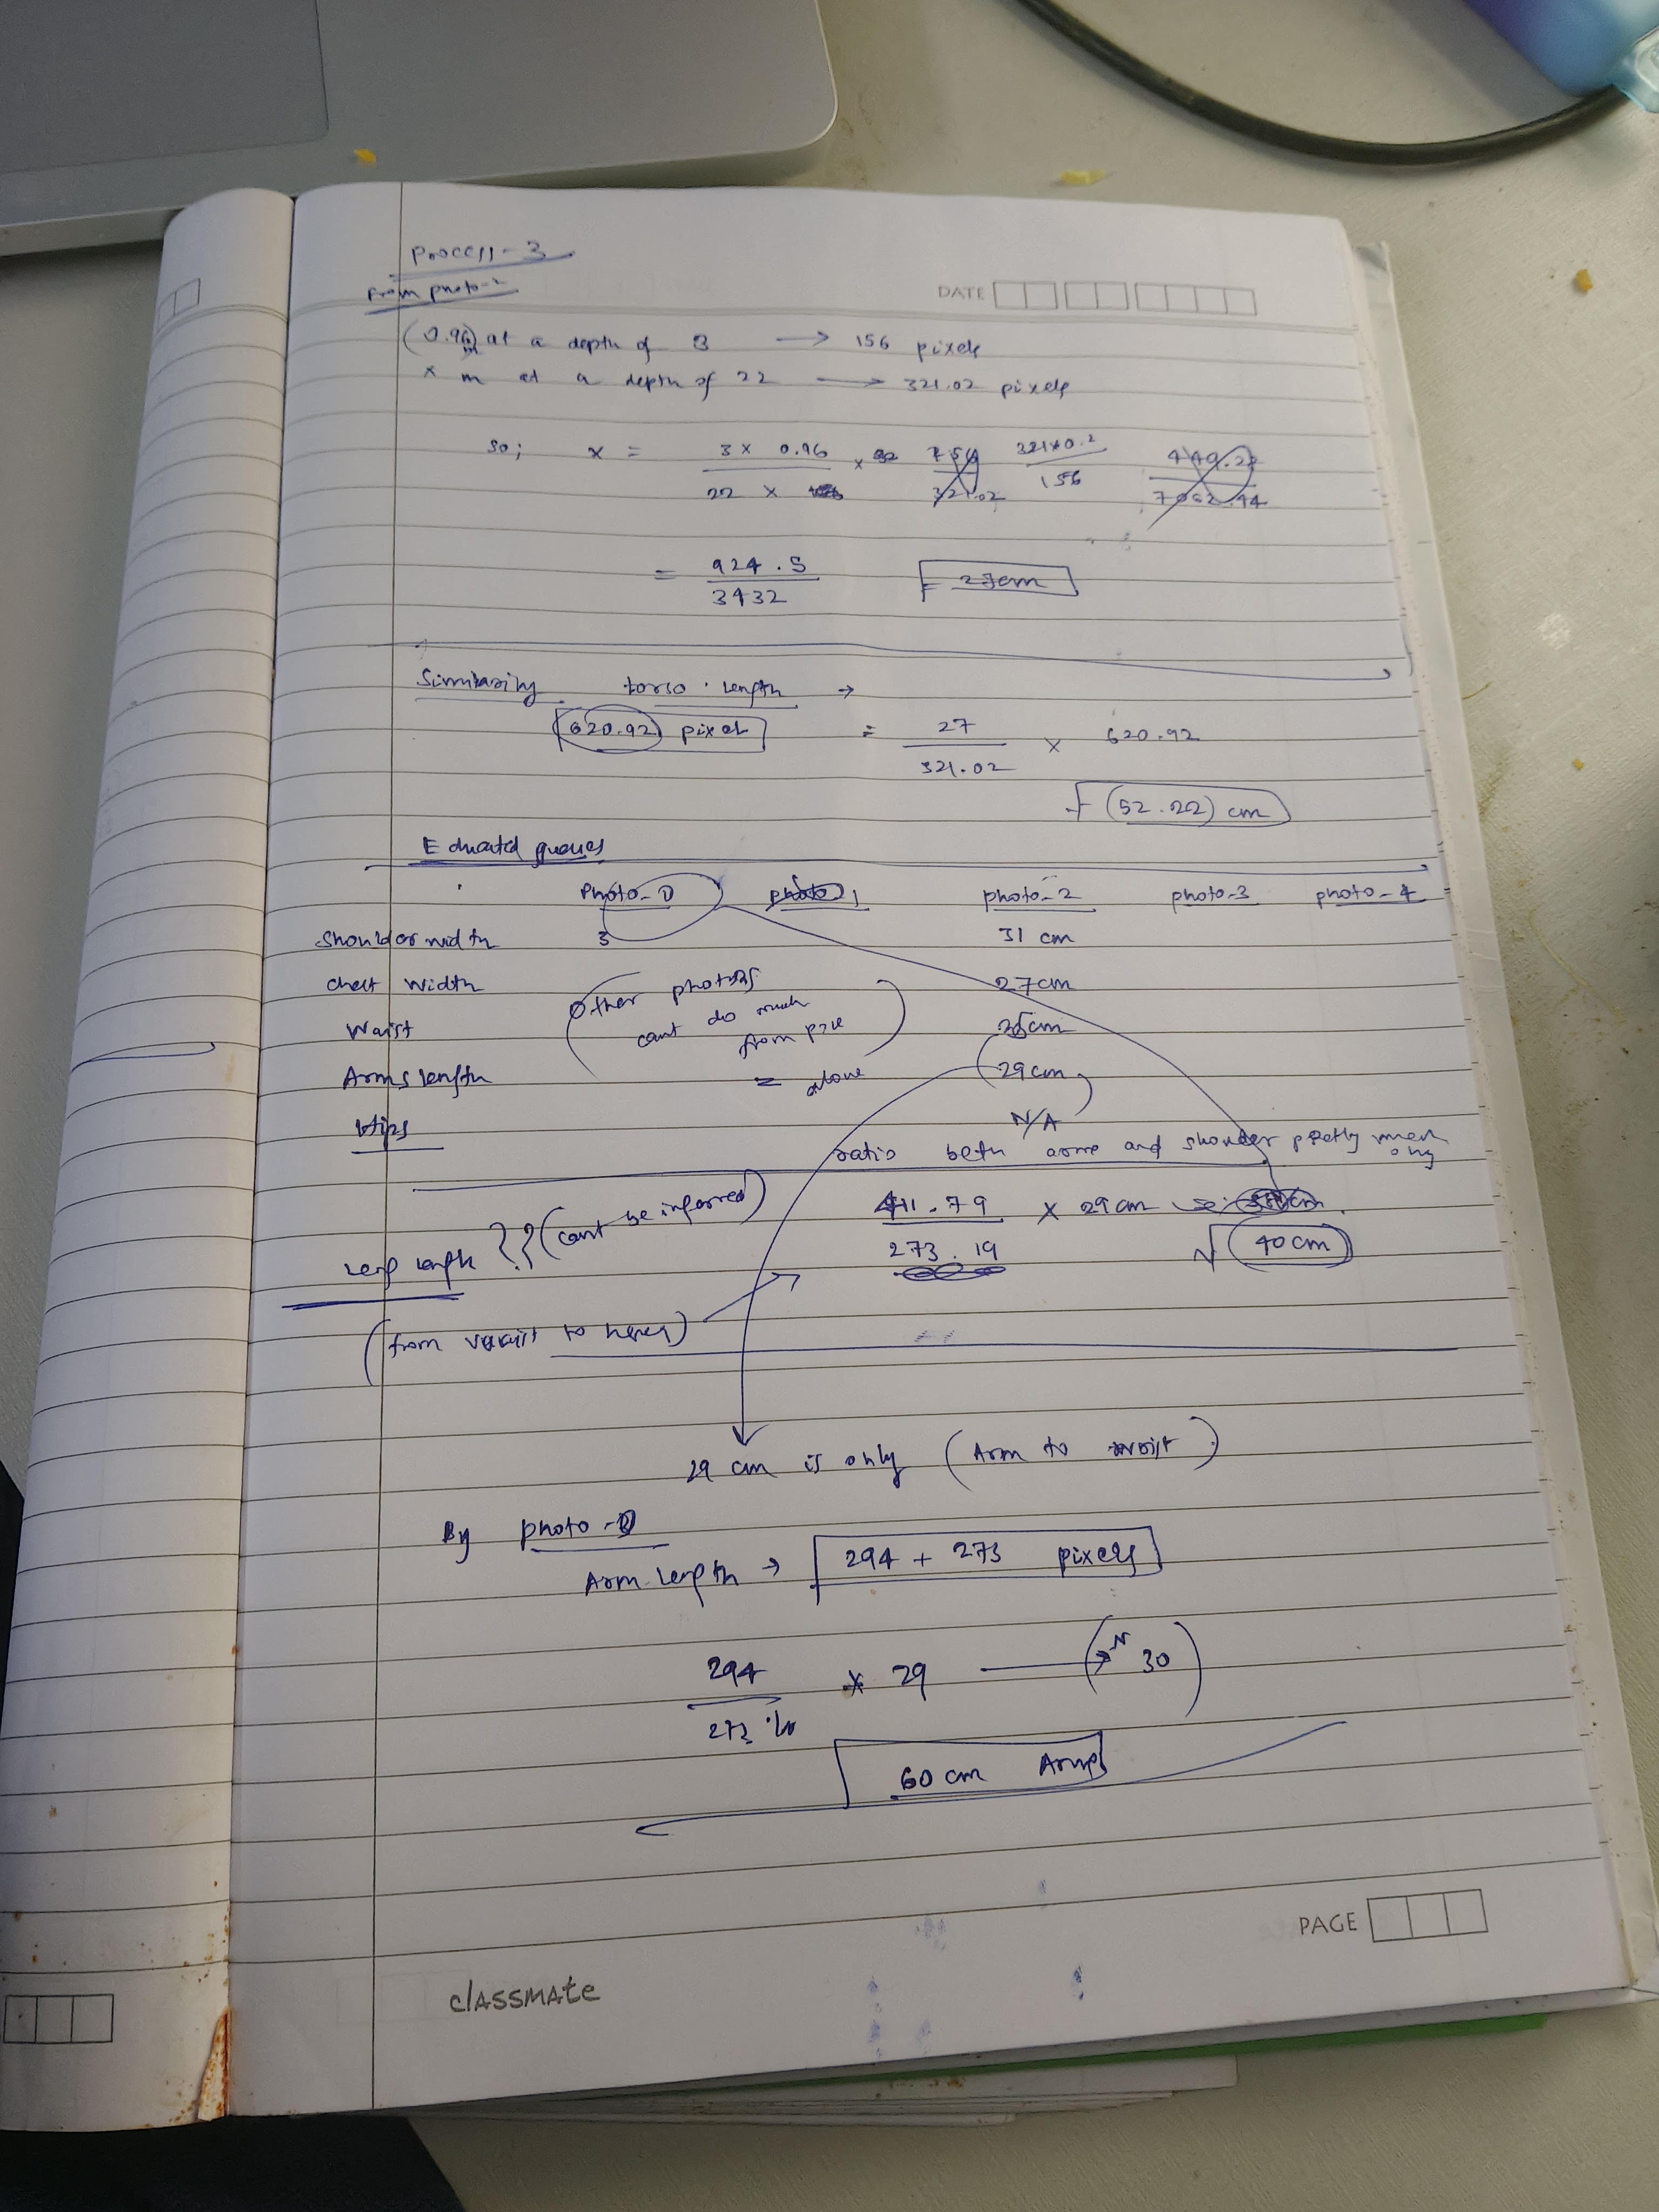 Process-3
From photo-2
DATE
(0.96)m at a depth of 3 → 156 pixels
x m at a depth of 22 → 321.02 pixels
so; x = 3 x 0.96 / 22 x 321x0.2 / 156
= 924.5 / 3432 = 27cm
Similarity torso length →
620.92 pixel = 27 / 321.02 x 620.92
(52.22) cm
Educated guesses
Photo-0 photo-1 photo-2 photo-3 photo-4
Shoulder width 3 31 cm
chest width 27cm
Waist 25cm
Arms length 29cm
Hips N/A
(Other photos cant do much from alone)
ratio betn arms and shoulder pretty much
411.79 / 273.19 x 29cm
40cm
Leng length ??(cant be inferred)
(from to )
29 cm is only (Arm to )
By photo-0
Arm length → 294 + 273 pixels
294 / 273 x 29 → (~ 30)
60 cm Arms
PAGE
classmate